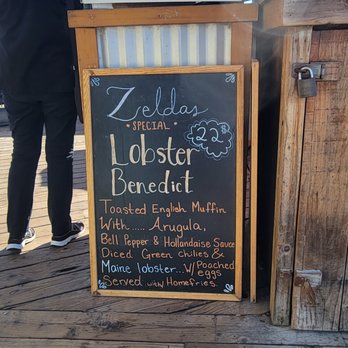 Zeldas
SPECIAL
22
Lobster
Benedict
Toasted English Muffin
With..... Arugula,
Bell Pepper & Hollandaise Sauce
Diced Green chilies &
Maine lobster... w/ Poached
eggs
Served with Homefries.